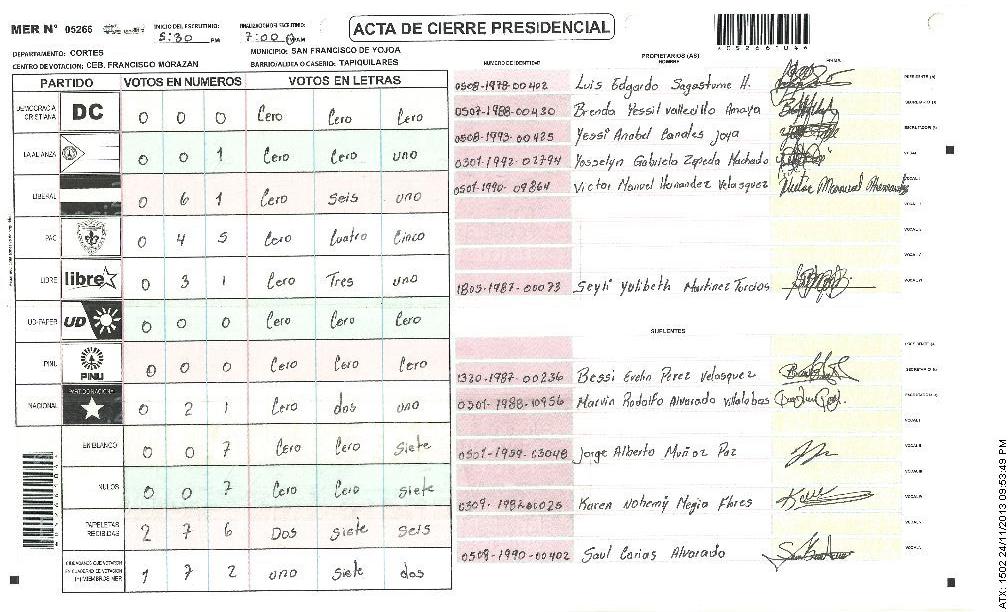 MER N° 05266
INICIO DEL ESCRUTINIO: 5:30 PM
FINALIZACION DEL ESCRUTINIO: 7:00 AM
ACTA DE CIERRE PRESIDENCIAL
DEPARTAMENTO: CORTES
MUNICIPIO: SAN FRANCISCO DE YOJOA
CENTRO DE VOTACION: CEB. FRANCISCO MORAZAN
BARRIO/ALDEA O CASERIO: TAPIQUILARES
PARTIDO VOTOS EN NUMEROS VOTOS EN LETRAS
DEMOCRACIA CRISTIANA DC 0 0 0 Cero Cero Cero
LA ALIANZA 0 0 1 Cero Cero uno
LIBERAL 0 6 1 Cero seis uno
PAC 0 4 5 Cero Cuatro Cinco
LIBRE libre 0 3 1 Cero Tres uno
UD-FAPER UD 0 0 0 Cero Cero Cero
PINU PINU 0 0 0 Cero Cero Cero
NACIONAL PARTIDO NACIONAL 0 2 1 Cero dos uno
EN BLANCO 0 0 7 Cero Cero siete
NULOS 0 0 7 Cero Cero siete
PAPELETAS RECIBIDAS 2 7 6 Dos siete seis
CIUDADANOS QUE VOTARON EN CUADERNO DE VOTACION (+) MIEMBROS MER 1 7 2 uno siete dos
PROPIETARIOS (AS)
NUMERO DE IDENTIDAD NOMBRE FIRMA
0508-1978-00402 Luis Edgardo Sagastume H.
0507-1988-00430 Brenda Yessil Vallecillo Amaya
0508-1993-00425 Yessi Anabel Canales Joya
0301-1992-02794 Yosselyn Gabriela Zepeda Machado
0501-1990-09864 Victor Manuel Hernandez Velasquez
1805-1987-00073 Seyli Yulibeth Martinez Turcios
SUPLENTES
1320-1987-00236 Bessi Evelin Perez Velasquez
0301-1988-10956 Marvin Rodolfo Alvarado Villalobos
0501-1959-03048 Jorge Alberto Muñoz Paz
0309-1982-00025 Karen Nohemy Megia Flores
0508-1990-00402 Saul Carias Alvarado
ATX: 1502 24/11/2013 09:53:49 PM